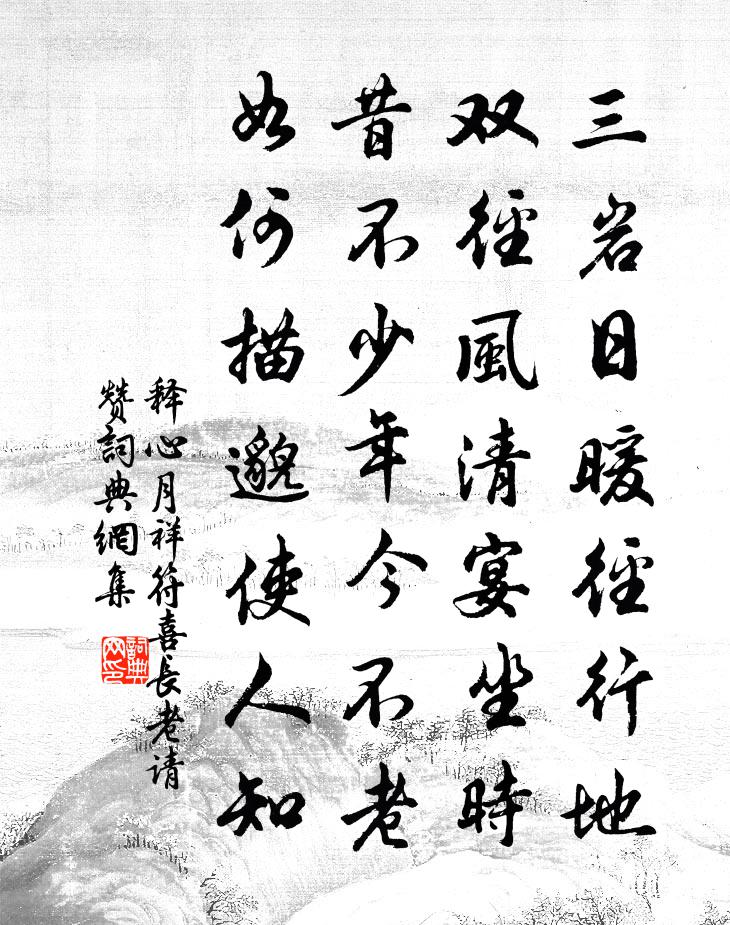 三岩日暖径行地
双径風清宴坐時
昔不少年今不老
如何描邈使人知
释心月祥符喜長老请
赞詞典網集
詞典网印